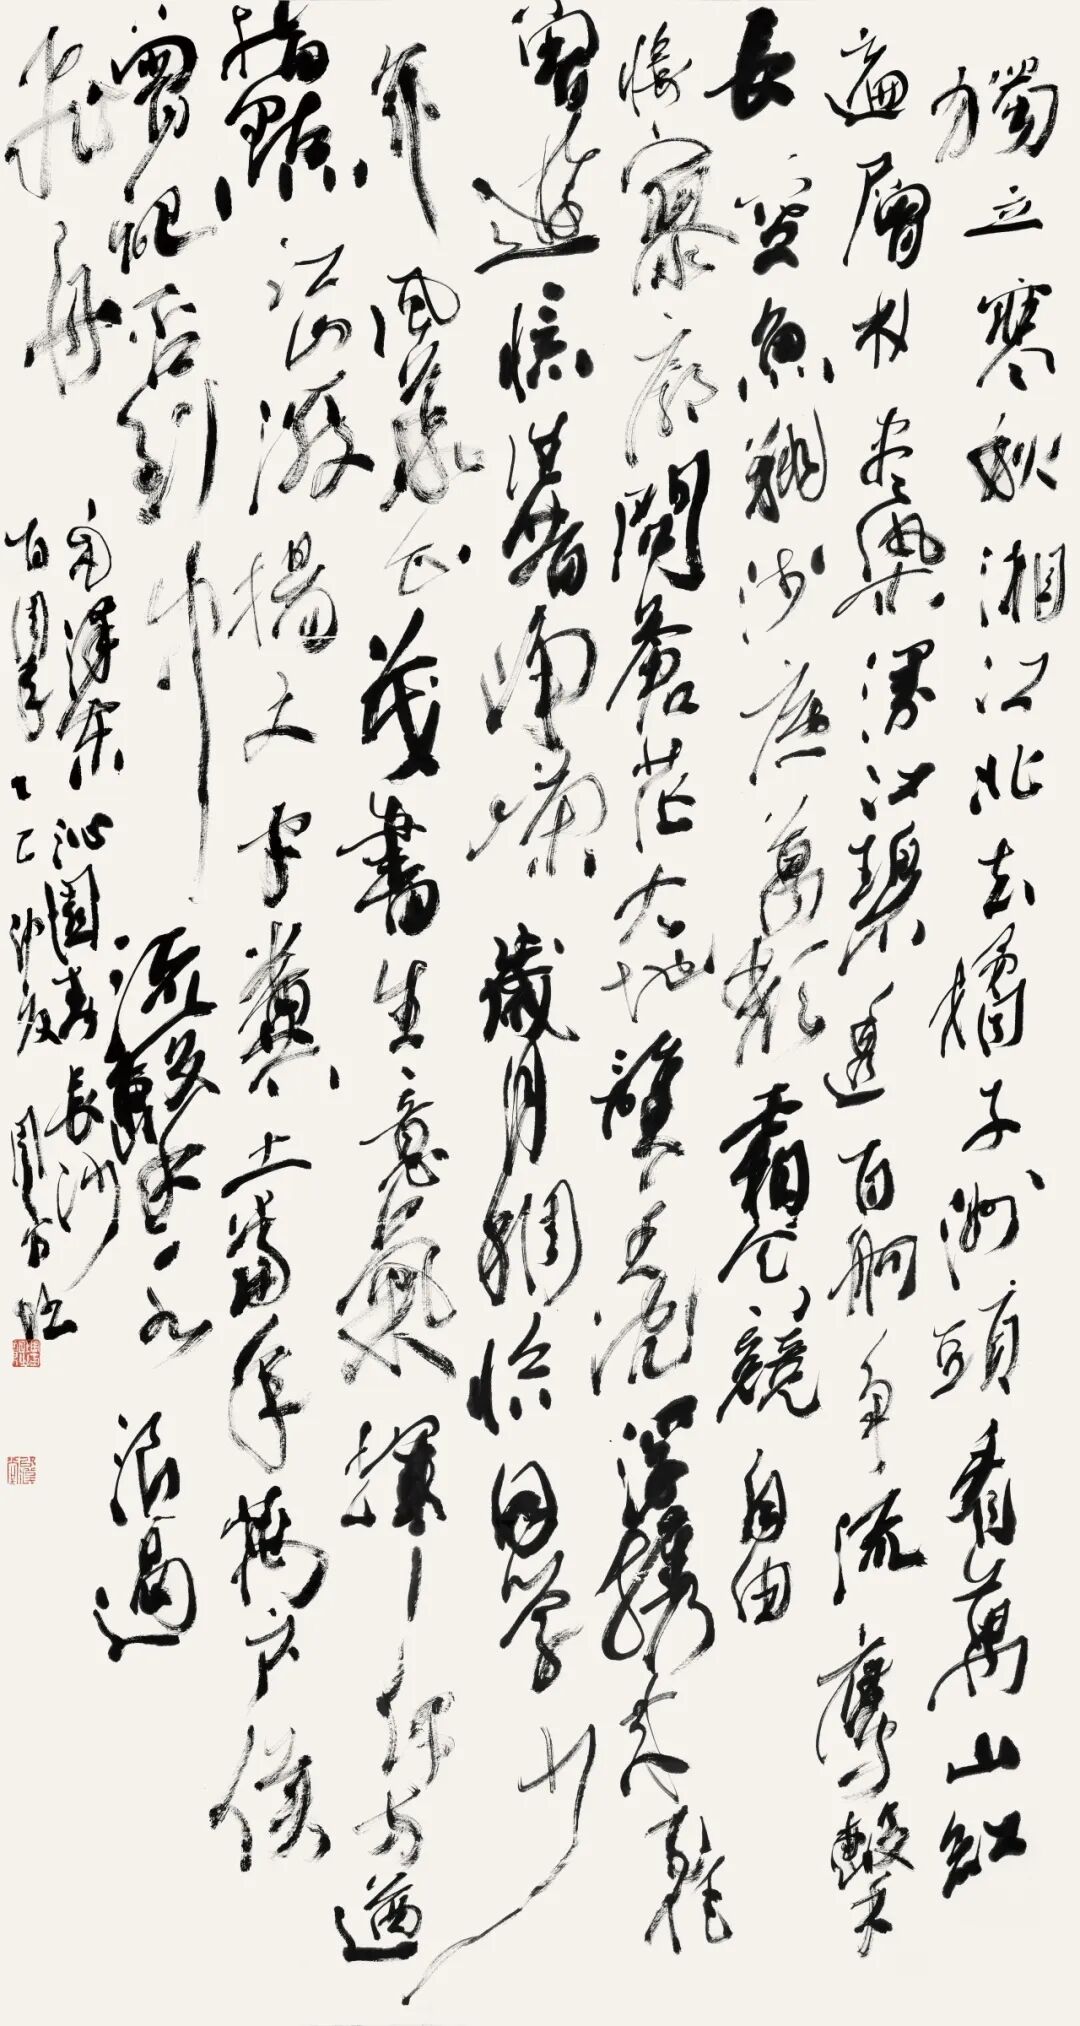 獨立寒秋湘江北去橘子洲頭看萬山紅
遍層林盡染漫江碧透百舸爭流鷹擊
長空魚翔淺底萬類霜天競自由
悵寥廓問蒼茫大地誰主沉浮攜來百侶
曾遊憶往昔崢嶸歲月稠恰同學少
年風華正茂書生意氣揮斥方遒
指點江山激揚文字糞土當年萬戶侯
曾記否到中流擊水浪遏
飛舟
澤東沁園春長沙
百周年乙巳